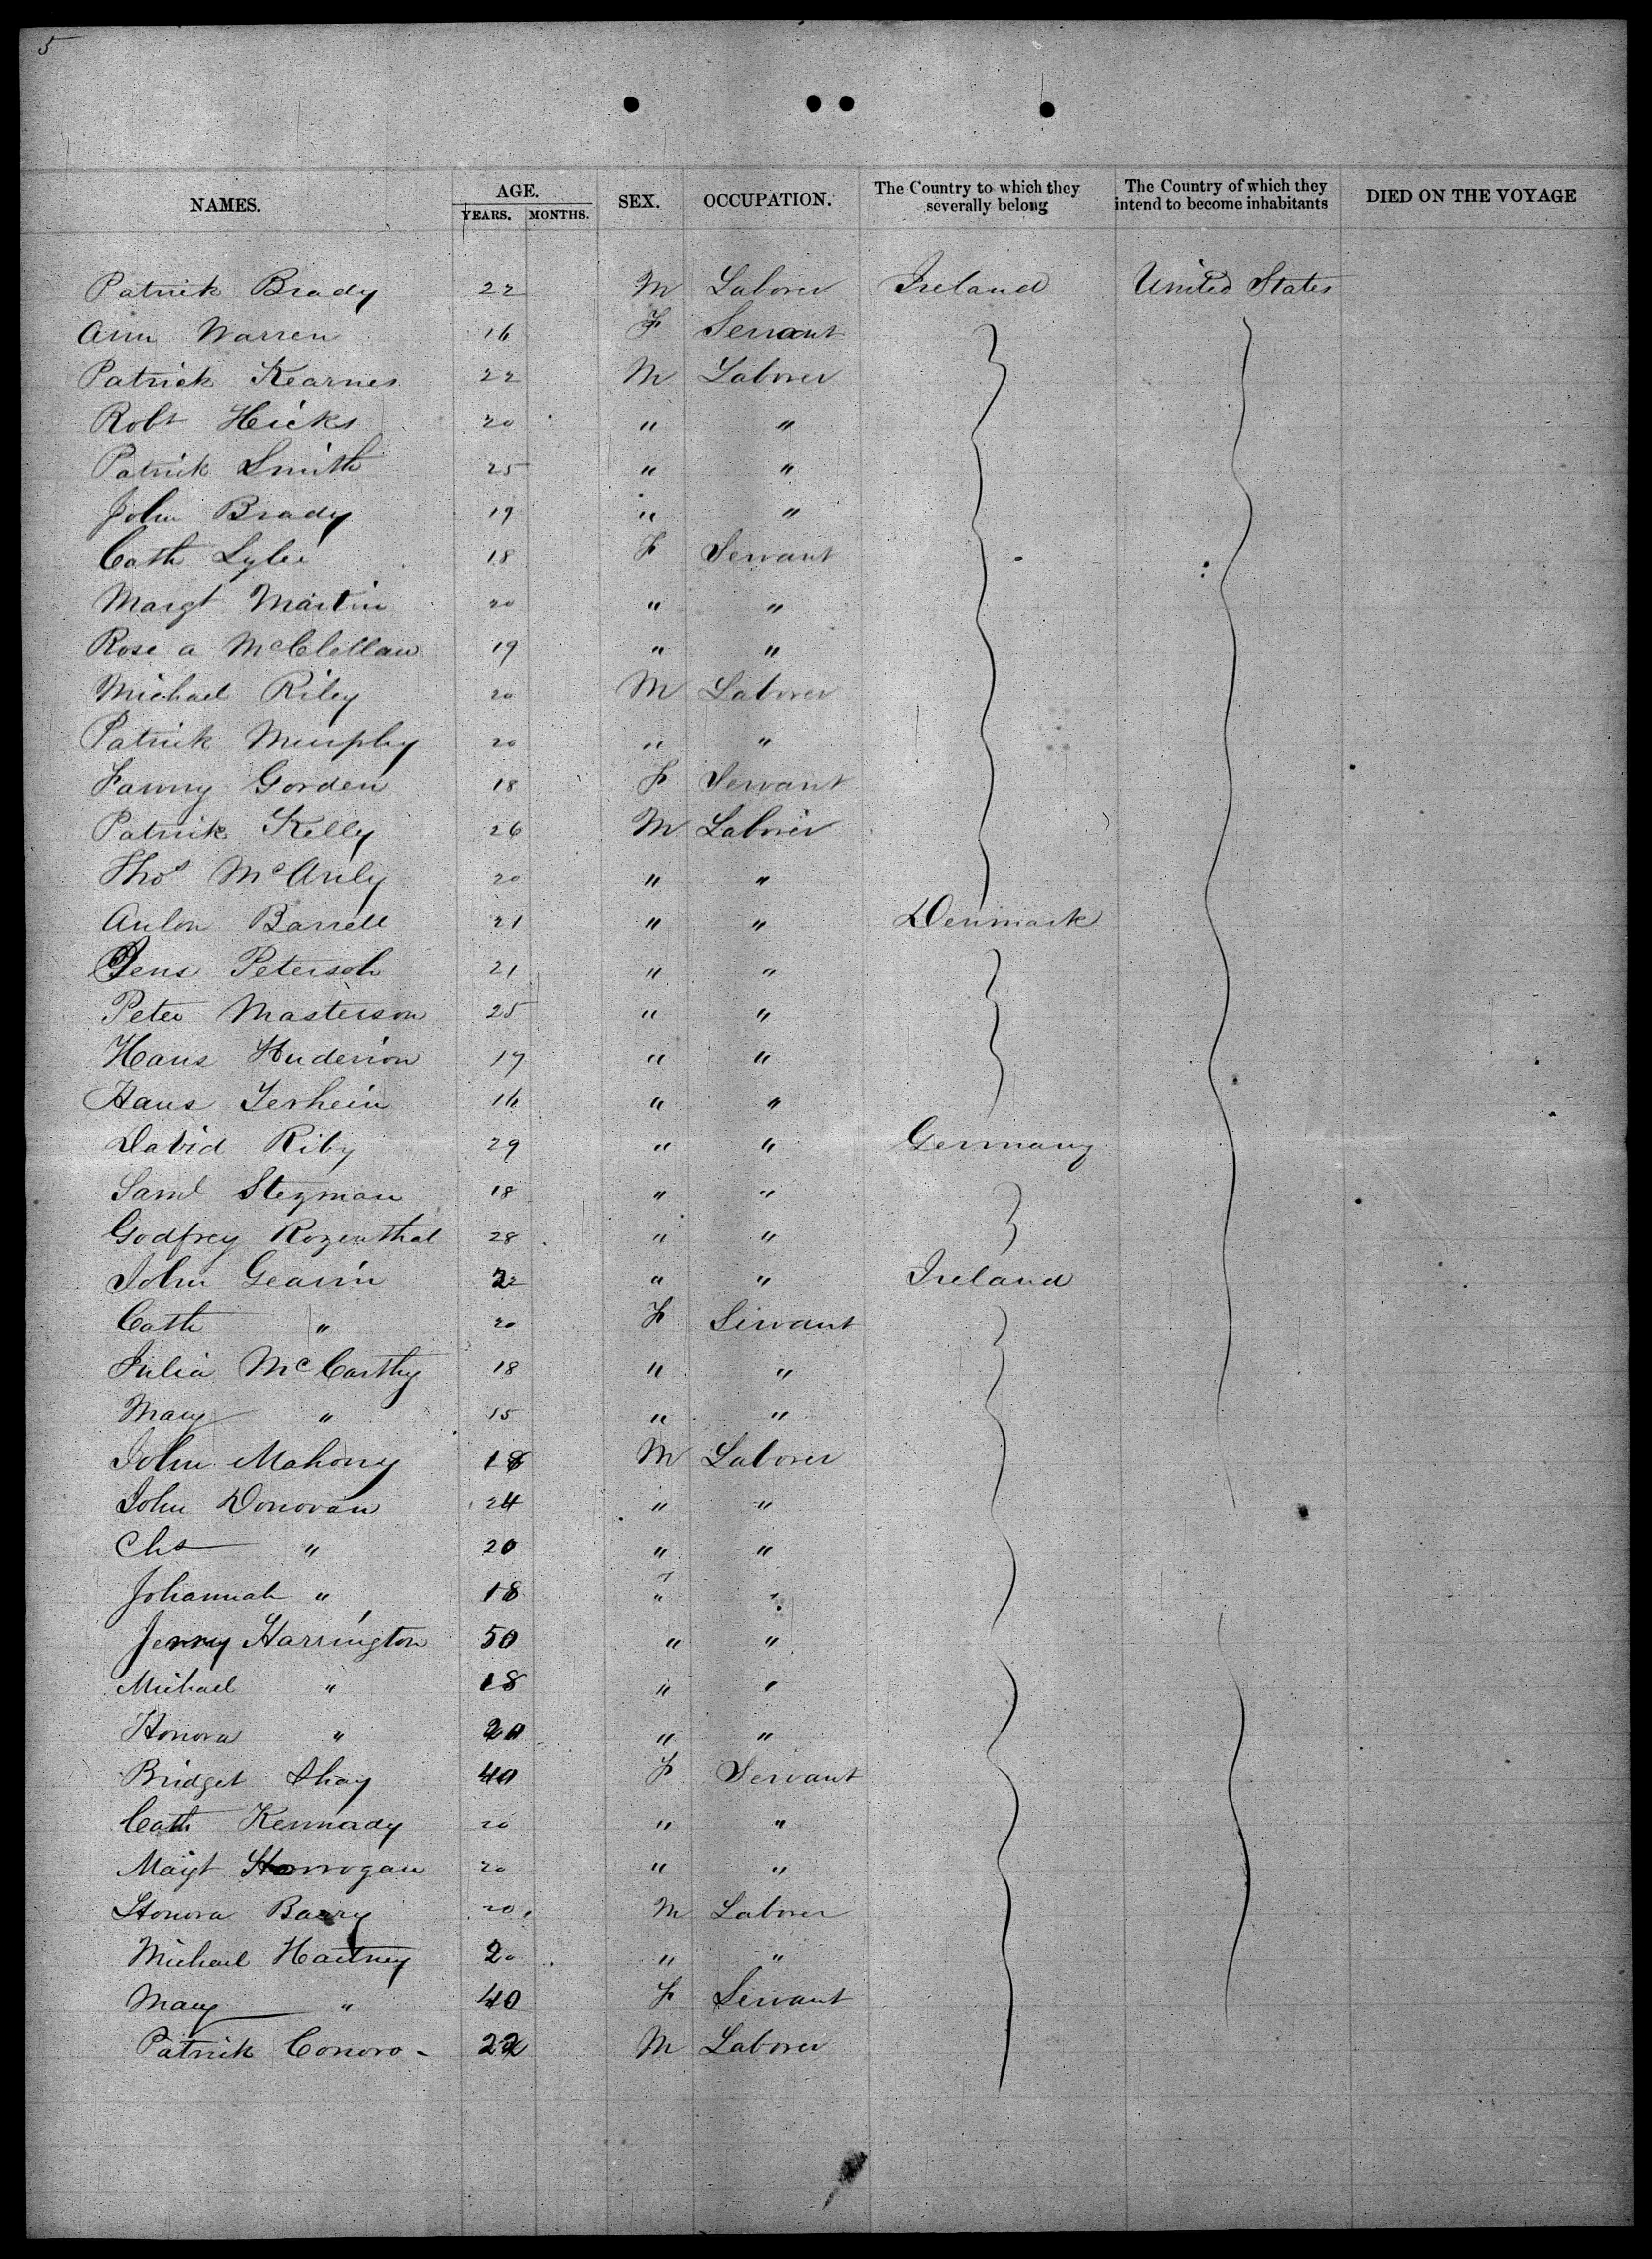 5
NAMES. AGE. SEX. OCCUPATION. The Country to which they severally belong The Country of which they intend to become inhabitants DIED ON THE VOYAGE
YEARS. MONTHS.
Patrick Brady 22 M Laborer Ireland United States
Ann Warren 16 F Servant
Patrick Kearnes 22 M Laborer
Robt Hicks 20 " "
Patrick Smith 25 " "
John Brady 19 " "
Cath 18 F Servant
Margt Martin 20 " "
Rose a McClellan 19 " "
Michael Riley 20 M Laborer
Patrick Murphy 20 " "
Fanny Gorden 18 F Servant
Patrick Kelly 26 M Laborer
Thos McAnly 20 " "
Barrett 21 " " Denmark
Jens Peterson 21 " "
Peter Masterson 25 " "
Hans 19 " "
Hans 16 " "
David 29 " " Germany
Saml Stegman 18 " "
Godfrey Rozenthal 28 " "
John Gearin 22 " " Ireland
Cath " 20 F Servant
Julia McCarthy 18 " "
Mary " 15 " "
John Mahony 18 M Laborer
John Donovan 24 " "
Chs " 20 " "
Johannah " 18 " "
Jerry Harrington 50 " "
Michael " 18 " "
Honora " 20 " "
Bridget Shay 40 F Servant
Cath Kennady 20 " "
Margt Horrogan 20 " "
Honora Barry 20 M Laborer
Michael Hartney 20 " "
Mary " 40 F Servant
Patrick Conoro 22 M Laborer